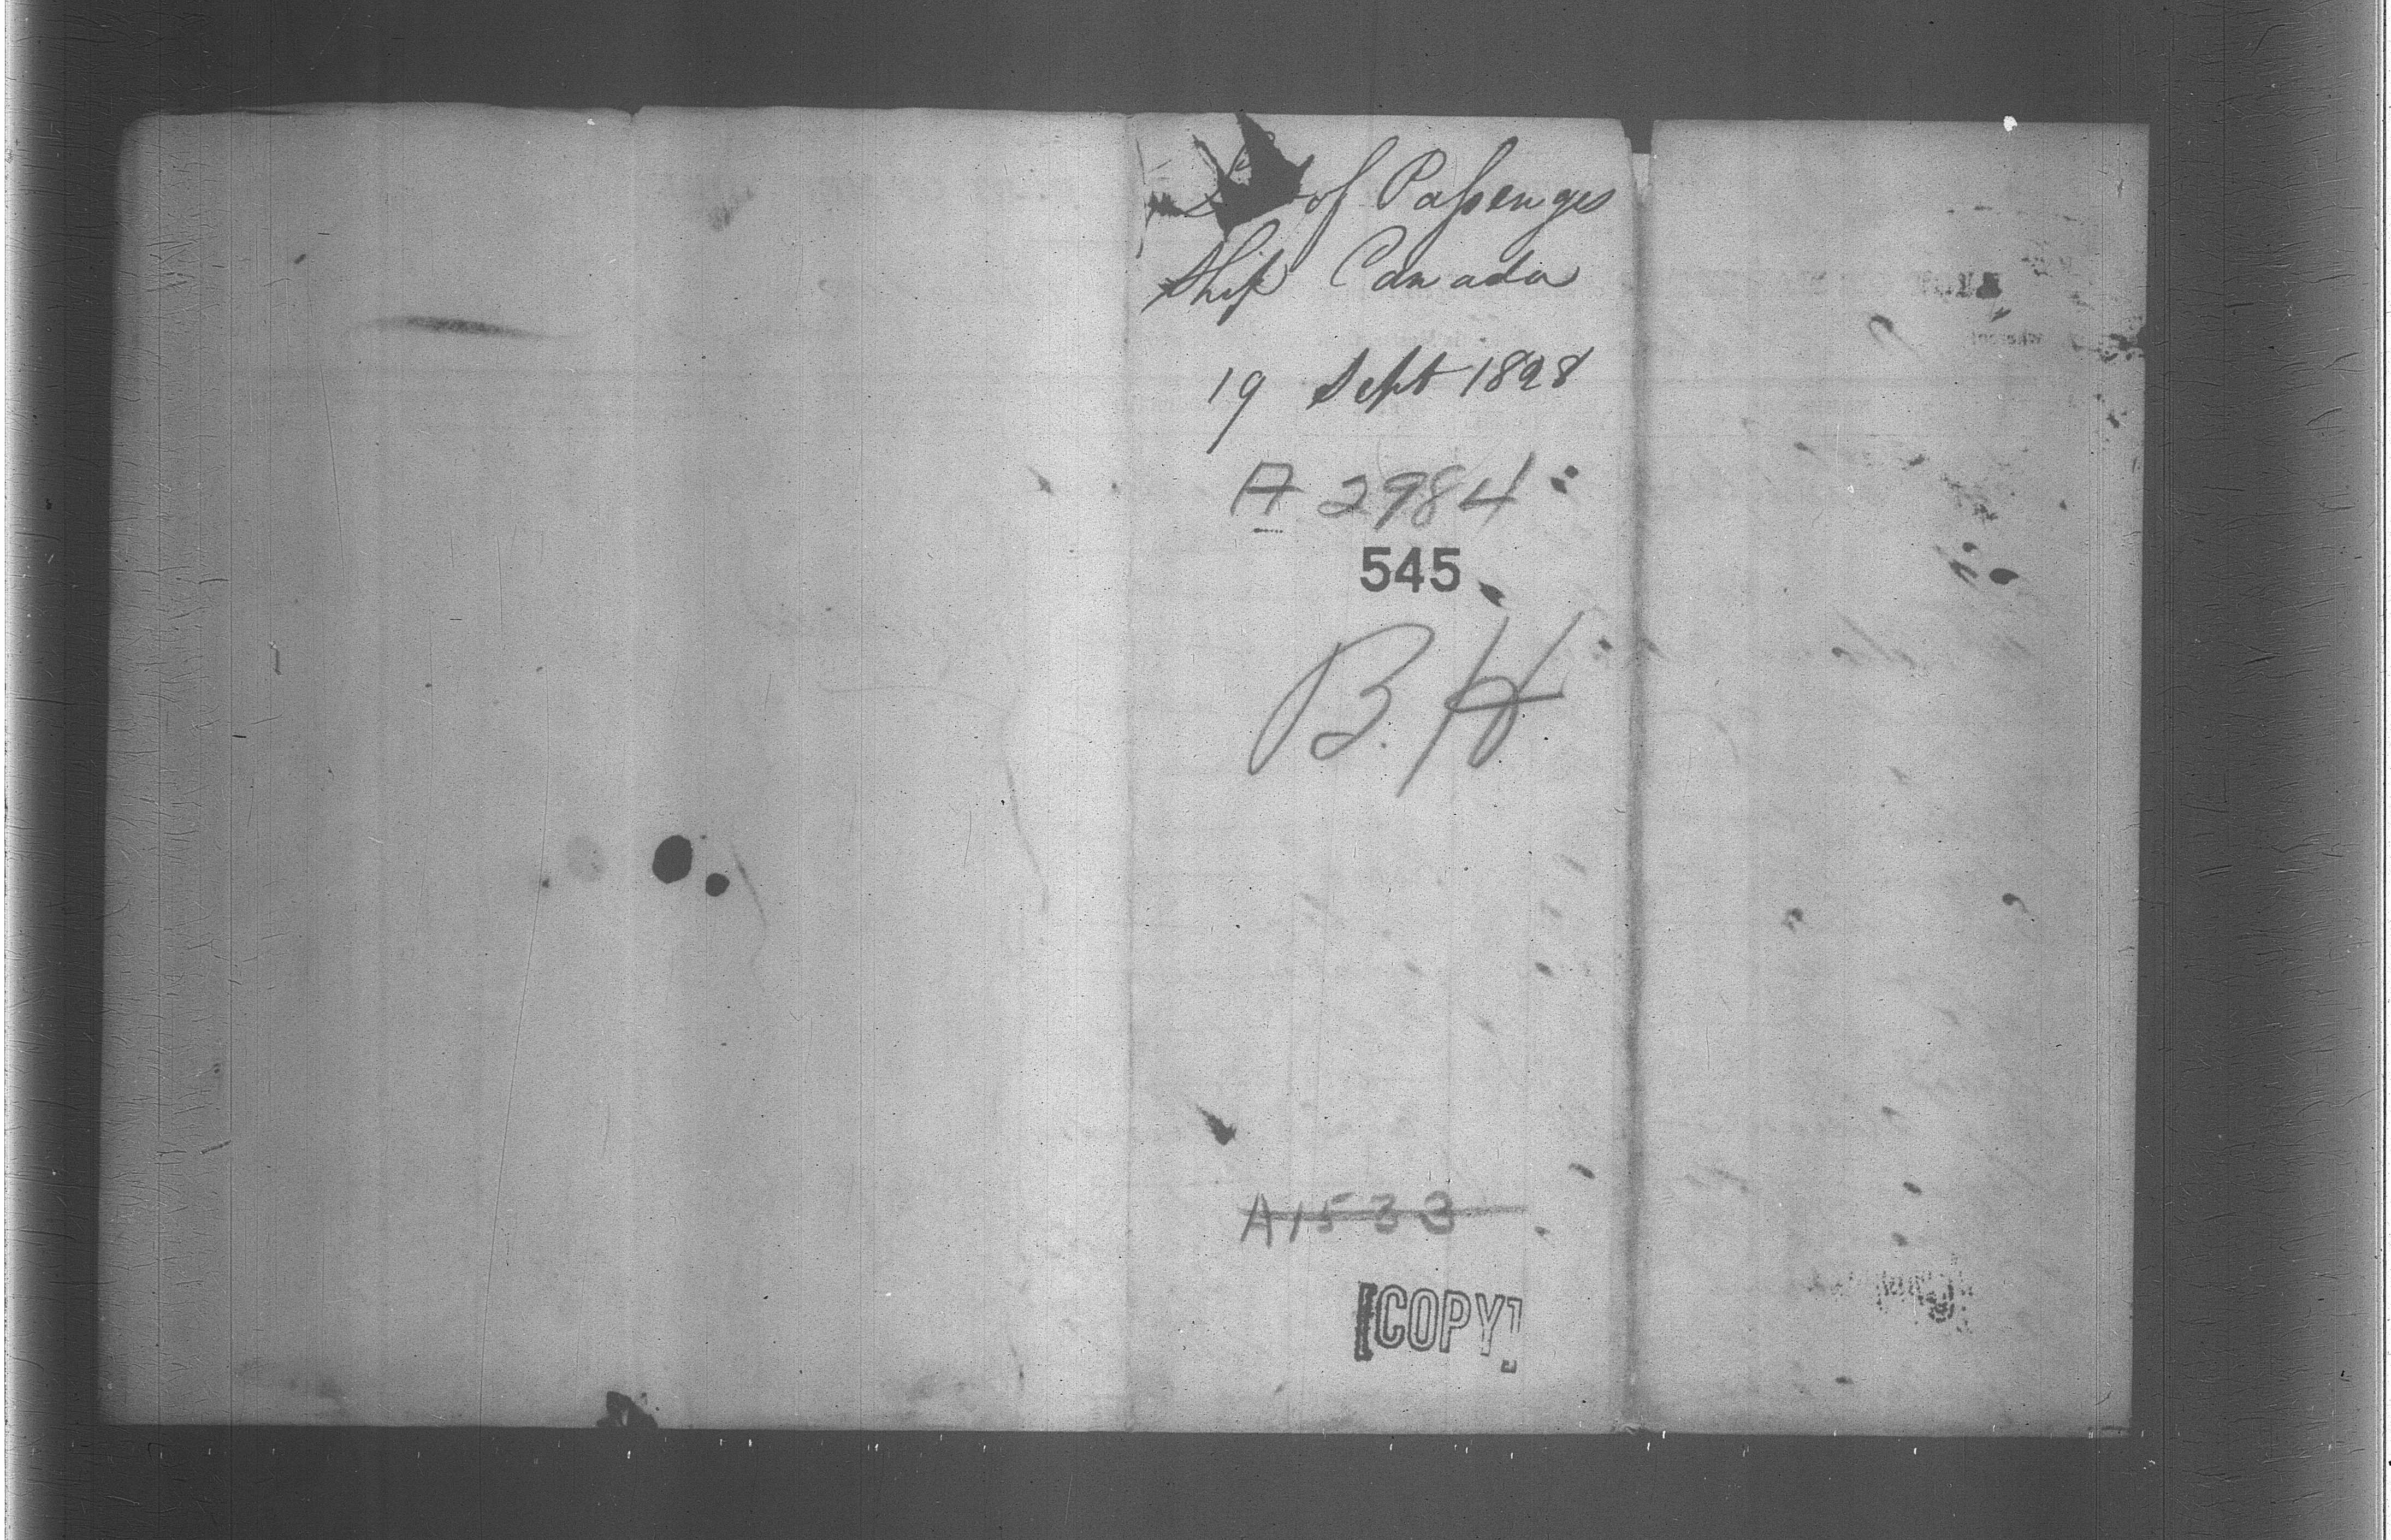 of Passenges
Ship Canada
19 Sept 1828
A 2984
545
B. H
A1533
[COPY]